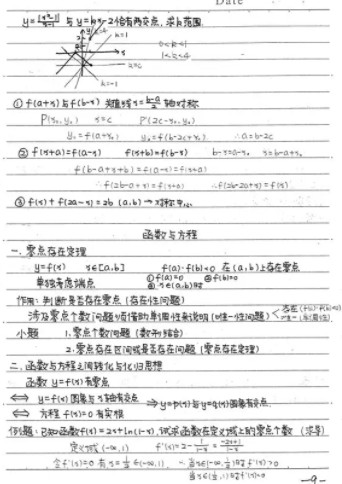 Date
y=|x²-1|/(x-1) 与 y=kx-2恰有两交点，求k范围.
k=1
0<k<1
1<k<4
k=-1
① f(a+x)与f(b-x) 关于直线x=(b-a)/2 轴对称
P(x₀,y₀) x=c P'(2c-x₀,y₀)
y₀=f(a+x₀) y₀=f(b-2c+x₀) ∴a=b-2c
② f(x+a)=f(a-x) f(x+b)=f(b-x) b-x=a-x₀ x=b-a+x₀
f(b-a+x+b)=f(a-x)=f(x+a)
∴f(2b-a+x)=f(x+a) ∴f(2b-2a+x)=f(x)
③ f(x)+f(2a-x)=2b (a,b)→对称中心
函数与方程
一. 零点存在定理
y=f(x) x∈[a,b] f(a)·f(b)<0 在(a,b)上存在零点
单独考虑端点 ①f(a)=0 ②f(b)=0
③x∈(a,b)时
作用: 判断是否存在零点 (存在性问题)
涉及零点个数问题必须借助单调性来说明 (唯一性问题)
小题 1. 零点个数问题 (数形结合)
2. 零点存在区间或是否存在问题 (零点存在定理)
二. 函数与方程之间转化与化归思想
函数 y=f(x)有零点
⟺ y=f(x)图象与x轴有交点 ⟺ y=p(x)与y=q(x)图象有交点.
⟺ 方程 f(x)=0 有实根
例1题: 已知函数f(x)=2x+ln(1-x), 试求函数在定义域上的零点个数 (求导)
定义域 (-∞,1) f'(x)=2-1/(1-x)=(-2x+1)/(1-x)
令f'(x)=0 有x=1/2∈(-∞,1). ∴当x∈(-∞,1/2)时f'(x)>0
当x∈(1/2,1)时f'(x)<0
-9-